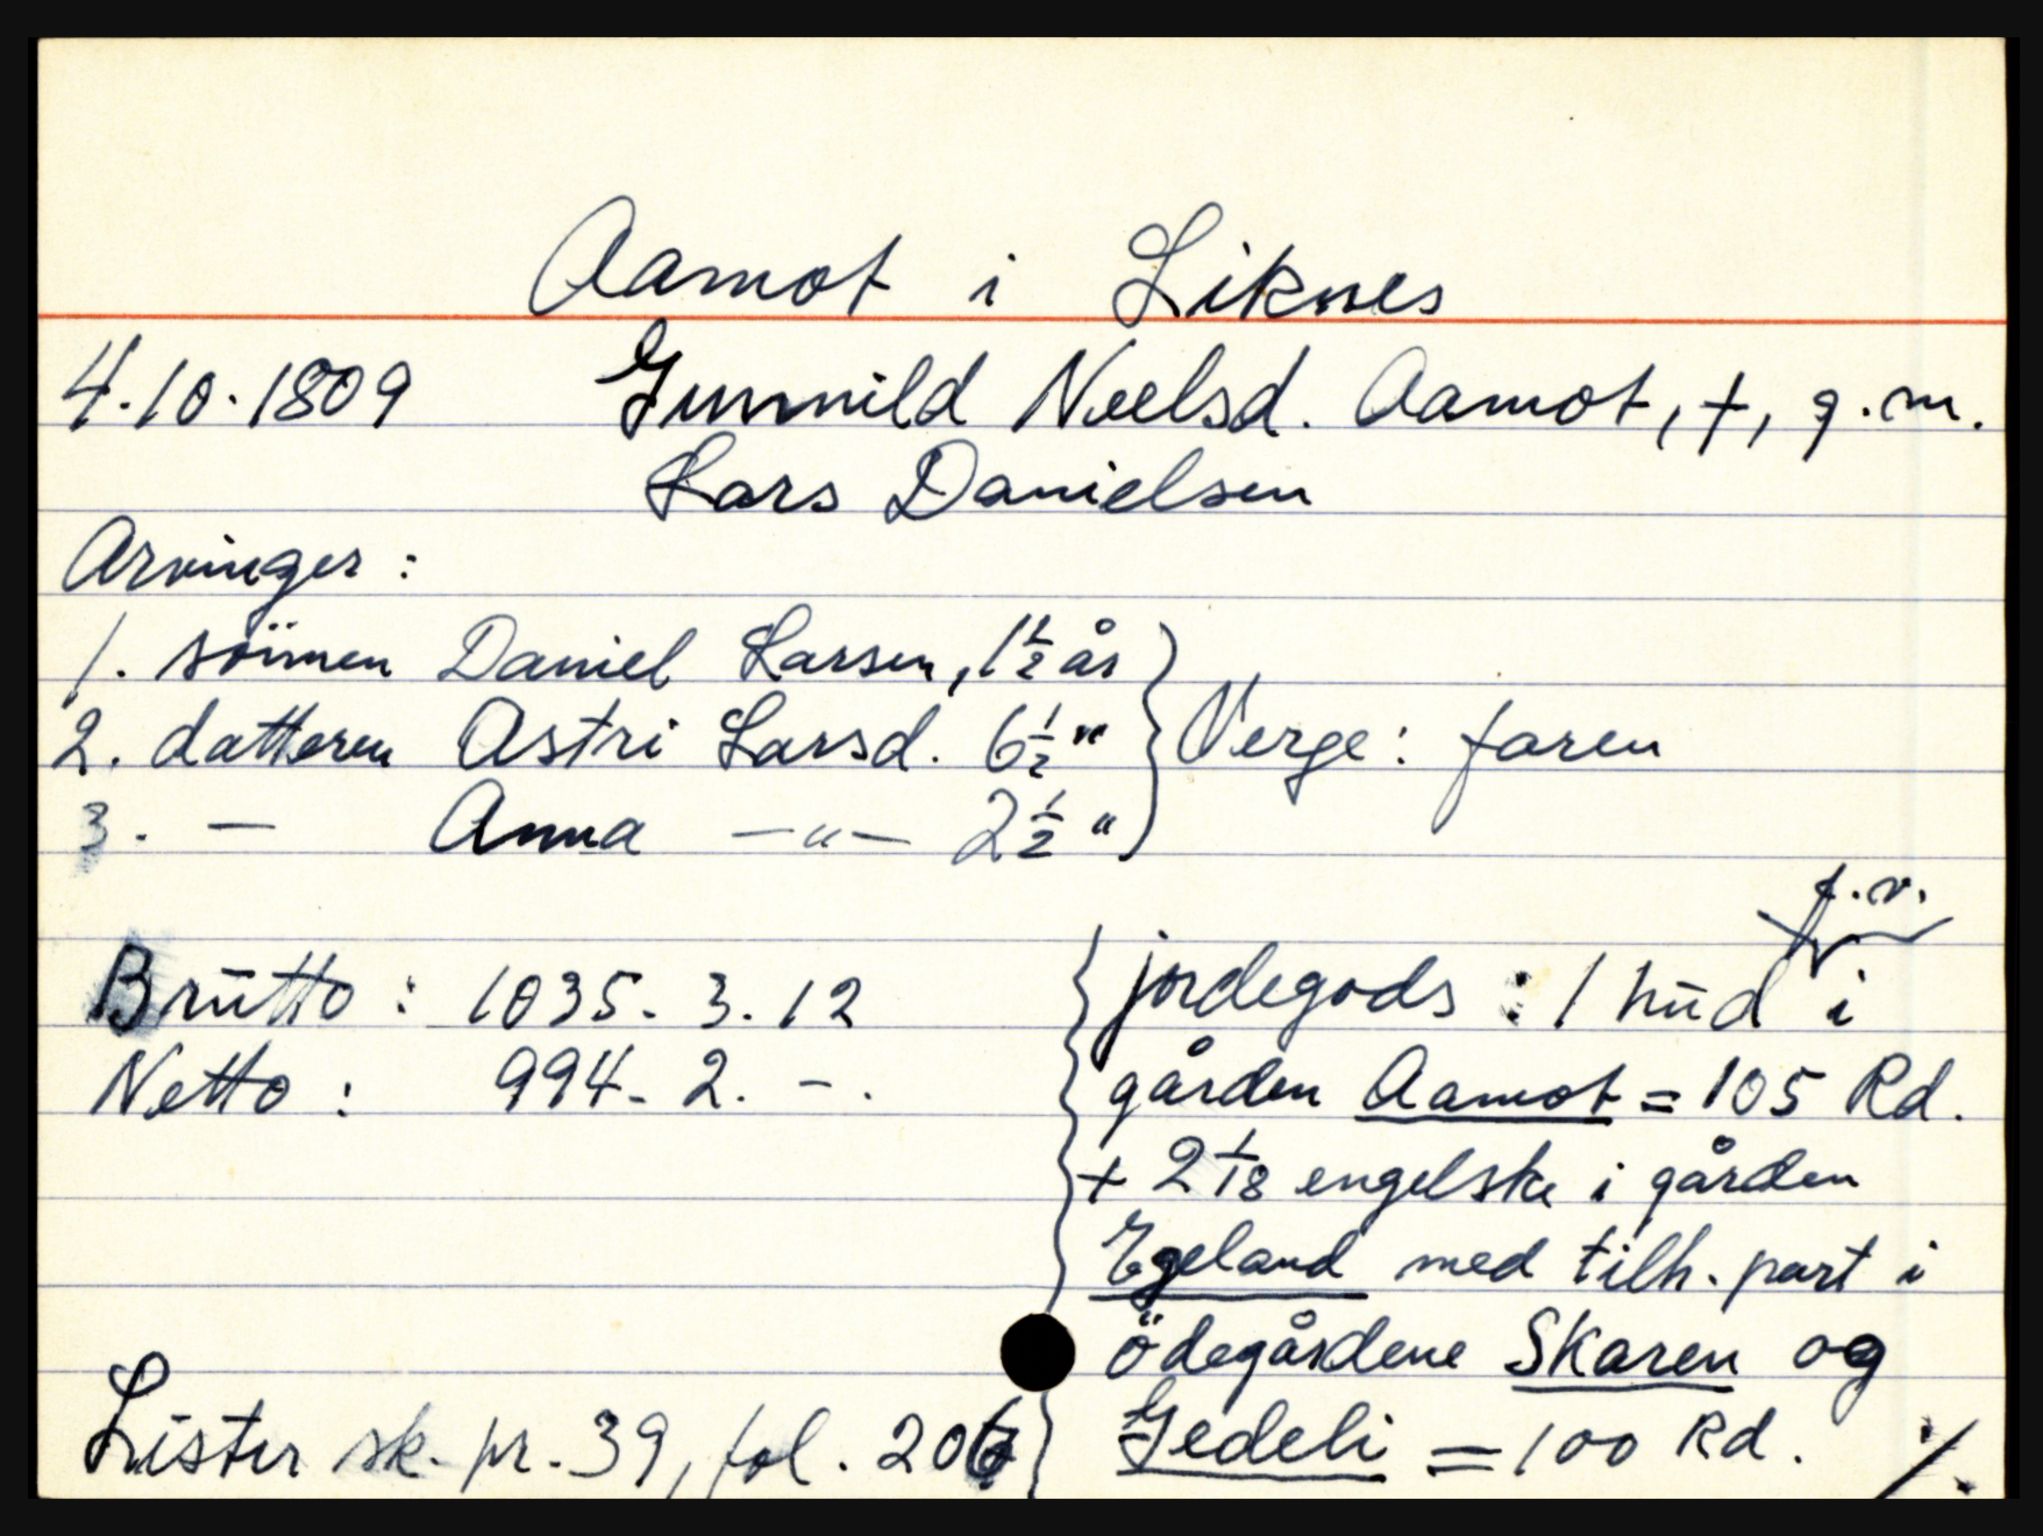 Aamot i Liknes
4.10.1809 Gunnild Neelsd. Aamot, †, g.m.
Lars Danielsen
Arvinger:
1. sönnen Daniel Larsen, 1 1/2 år
2. datteren Astri Larsd. 6 1/2 "
3. — Anna —"— 2 1/2 "
Verge: faren
Brutto: 1035. 3. 12
Netto: 994. 2. -.
jordegods: 1 hud f.v. i
gården Aamot = 105 Rd.
+ 2 1/18 engelske i gården
Egeland med tilh. part i
ödegårdene Skaren og
Gedeli = 100 Rd. ./.
Lister sk. pr. 39, fol. 206